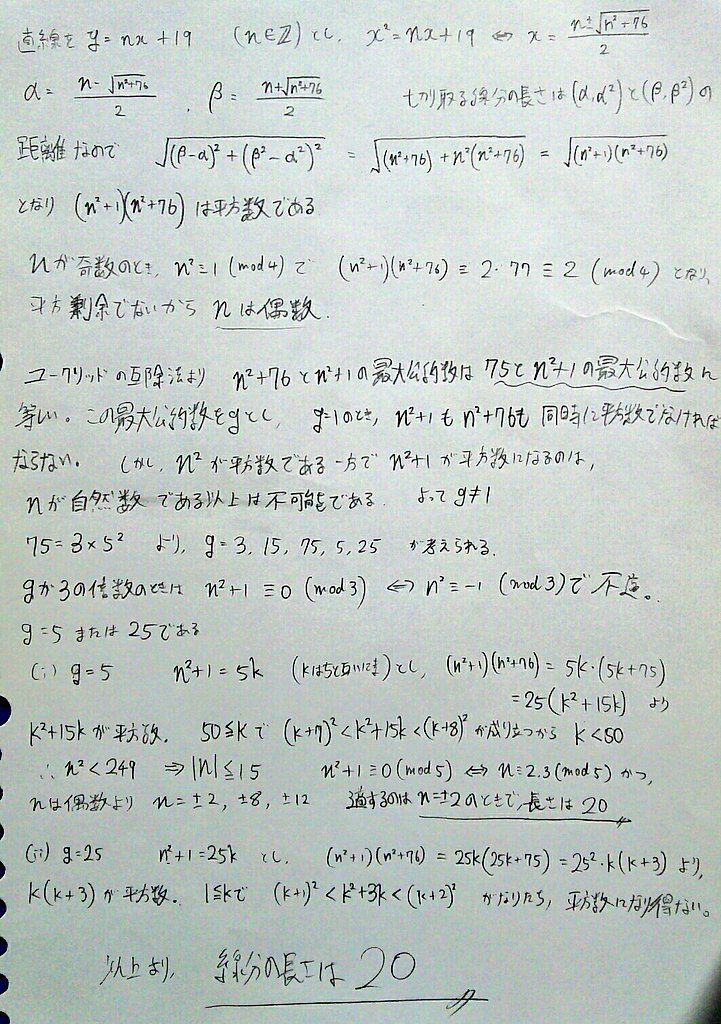 直線を y=nx+19 (n∈ℤ)とし、 x²=nx+19 ⇔ x=(n±√(n²+76))/2
α=(n-√(n²+76))/2 , β=(n+√(n²+76))/2 切り取る線分の長さは(α,α²)と(β,β²)の
距離なので √((β-α)²+(β²-α²)²) = √((n²+76)+n²(n²+76)) = √((n²+1)(n²+76))
となり (n²+1)(n²+76) は平方数である
nが奇数のとき、n²≡1 (mod4)で (n²+1)(n²+76)≡2・77≡2 (mod4) となり、
平方剰余でないから nは偶数.
ユークリッドの互除法より n²+76とn²+1の最大公約数は 75とn²+1の最大公約数に
等しい。この最大公約数をgとし、 g=1のとき、n²+1も n²+76も 同時に平方数でなければ
ならない。 しかし、n²が平方数である一方で n²+1が平方数になるのは、
nが自然数である以上は不可能である. よって g≠1
75=3×5² より、g=3, 15, 75, 5, 25 が考えられる.
gが3の倍数のときは n²+1≡0 (mod3) ⇔ n²≡-1 (mod3)で 不適。
g=5 または 25である
(i) g=5 n²+1=5k (kは5と互いに素)とし、(n²+1)(n²+76)=5k・(5k+75)
=25(k²+15k) より
k²+15kが平方数. 50≦kで (k+7)²<k²+15k<(k+8)²が成り立つから k<50
∴ n²<249 ⇒|n|≦15 n²+1≡0(mod5) ⇔ n≡2.3(mod5) かつ、
nは偶数より n=±2, ±8, ±12 適するのは n=±2のときで、長さは 20
(ii) g=25 n²+1=25k とし、 (n²+1)(n²+76)=25k(25k+75)=25²・k(k+3)より、
k(k+3)が平方数. 1≦kで (k+1)²<k²+3k<(k+2)² がなりたち、平方数になり得ない。
以上より、 線分の長さは 20